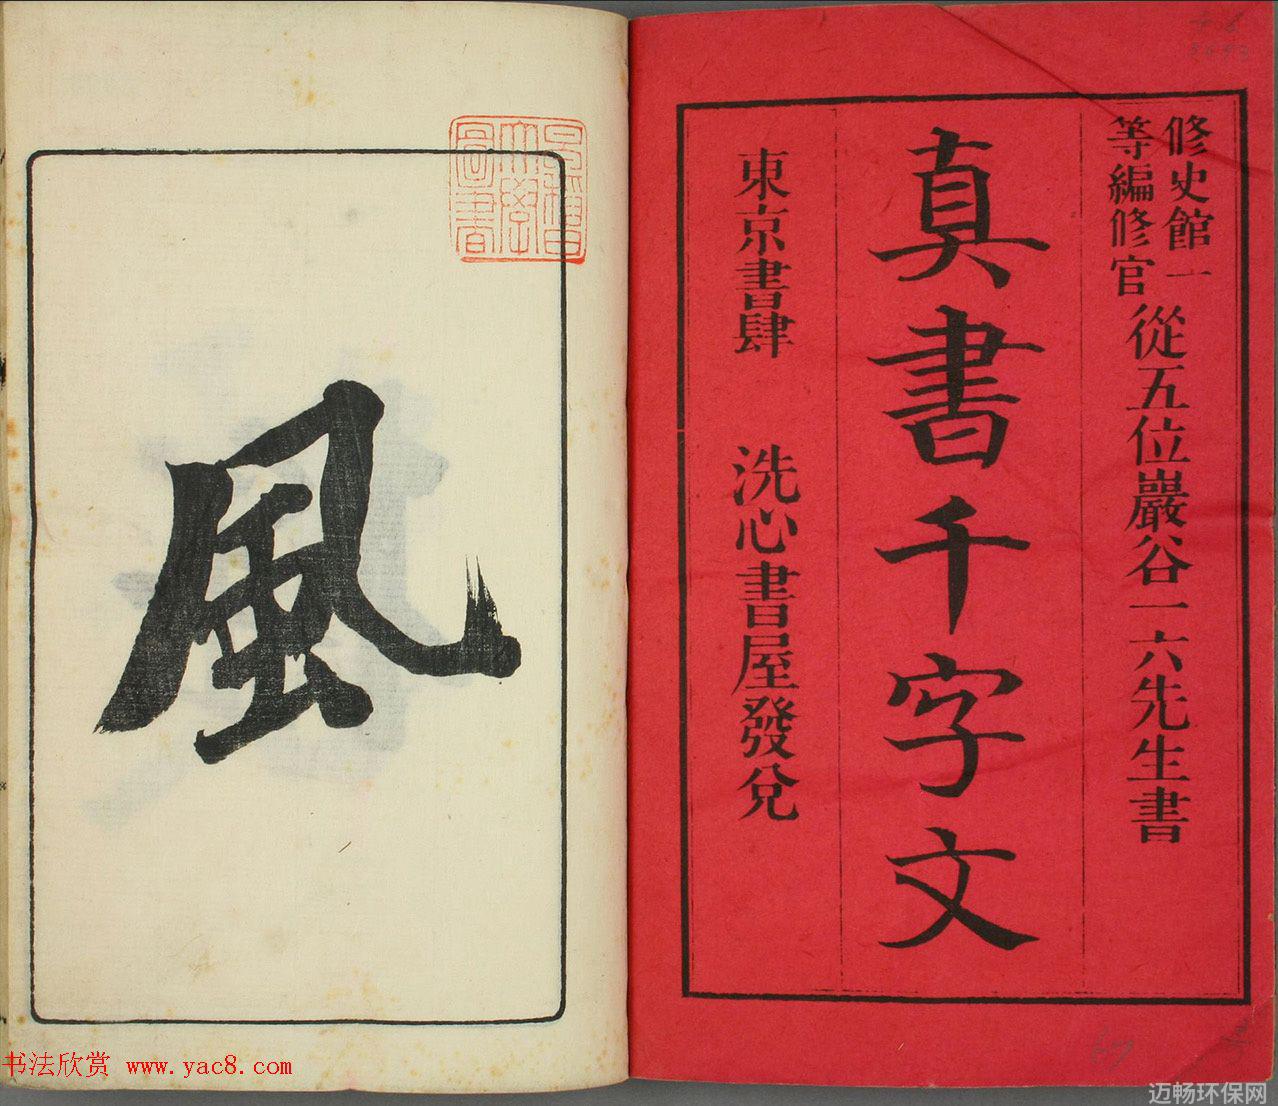 修史館一
等編修官
從五位巖谷一六先生書
真書千字文
東京書肆 洗心書屋發兌
早稻田大學圖書
風
书法欣赏 www.yac8.com
迈畅环保网